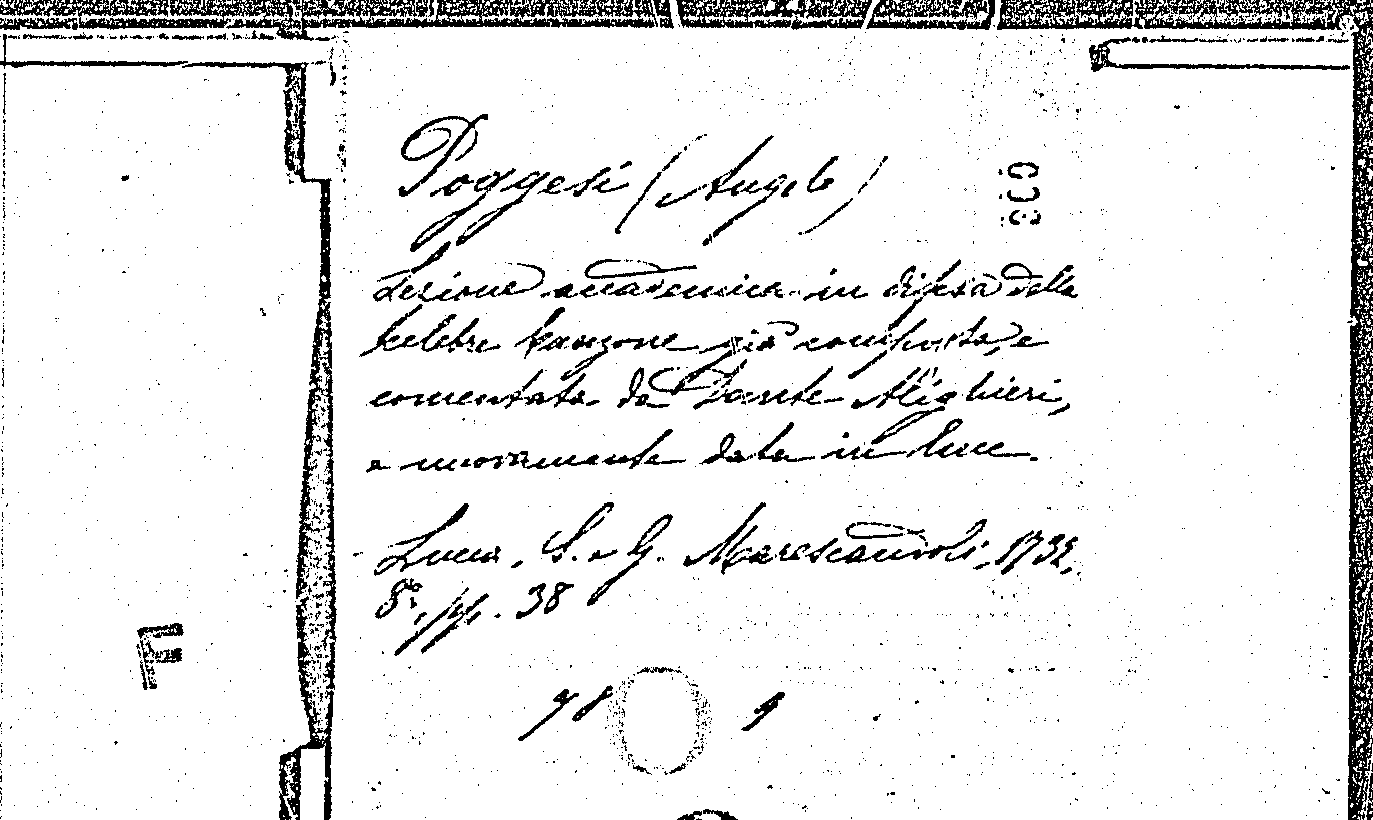 Poggesi (Angelo)
Lezione accademica in difesa della
celebre canzone già composta, e
comentata da Dante Alighieri,
e nuovamente data in luce.
Lucca, S. e G. Marescandoli, 1732,
8°, pp. 38
98 9
F